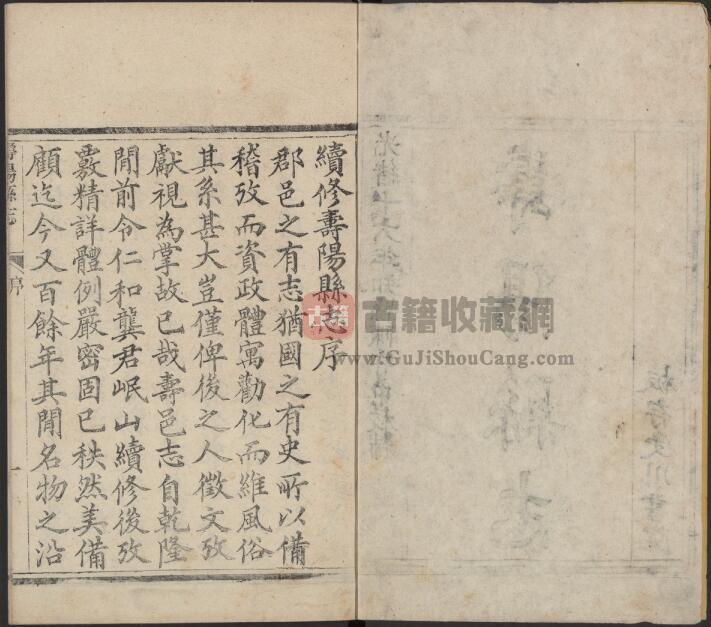 續修壽陽縣志序
郡邑之有志猶國之有史所以備
稽攷而資政體寓勸化而維風俗
其系甚大豈僅俾後之人徵文攷
獻視為掌故已哉壽邑志自乾隆
閒前令仁和龔君岷山續修後攷
覈精詳體例嚴密固已秩然美備
顧迄今又百餘年其閒名物之沿
壽陽縣志
序
一
古籍
古籍收藏網
www.GuJiShouCang.com